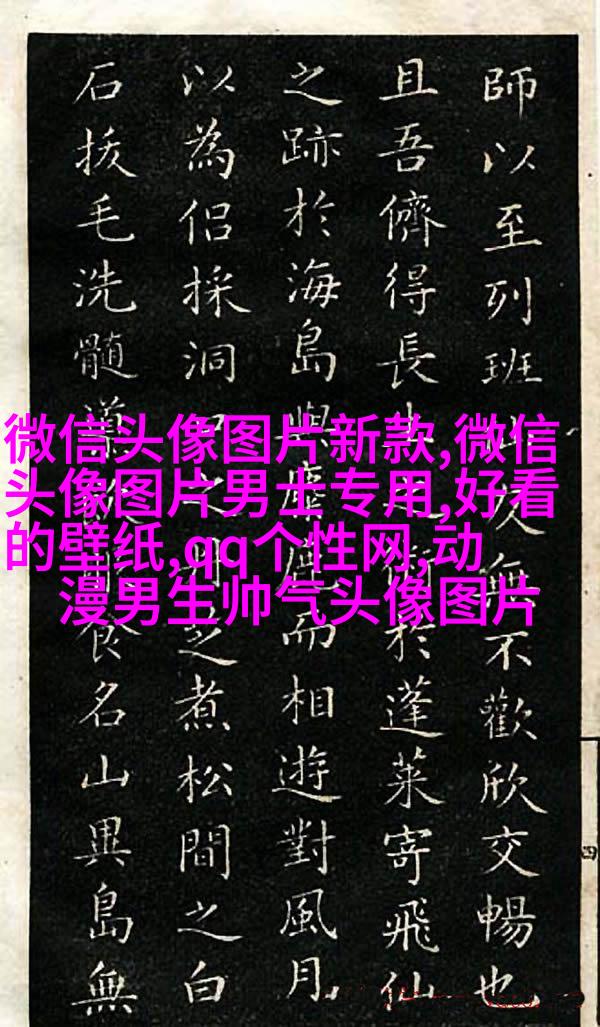 師以至列班無不歡欣交暢也
且吾儕得長術於蓬萊寄飛仙
之跡於海島與麋鹿而相遊對風月
以為侶採洞之煮松間之白
石拔毛洗髓食名山異島無
微信头像图片新款,微信
头像图片男士专用,好看
的壁纸,qq个性网,动
漫男生帅气头像图片
四